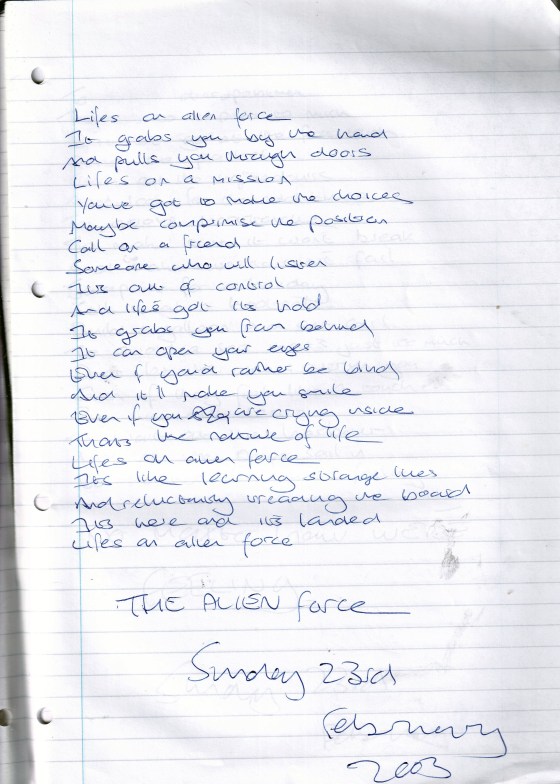 Lifes an alien force
It grabs you by the hand
And pulls you through doors
Lifes on a mission
You've got to make the choices
Maybe compromise the position
Call on a friend
Someone who will listen
Its out of control
And life's got its hold
It grabs you from behind
It can open your eyes
Even if you'd rather be blind
And it'll make you smile
Even if you are crying inside
Thats the nature of life
Lifes an alien force
Its like learning strange lines
And reluctantly treading the board
Its here and its landed
Lifes an alien force
THE ALIEN force
Sunday 23rd
February
2003